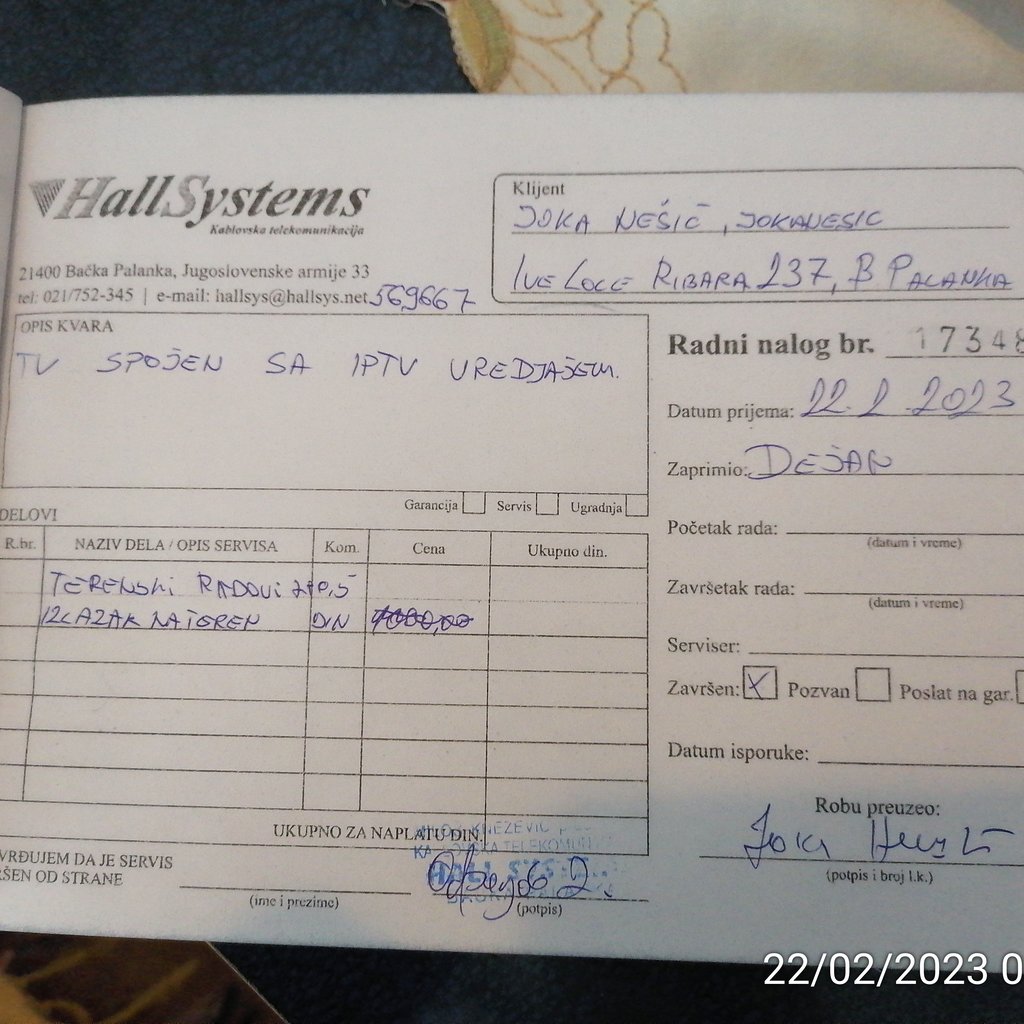 HallSystems
Kablovska telekomunikacija
21400 Bačka Palanka, Jugoslovenske armije 33
tel: 021/752-345 | e-mail: hallsys@hallsys.net 569667
Klijent
JOKA NEŠIĆ, JOKANESIC
IVE LOLE RIBARA 237, B PALANKA
OPIS KVARA
TV SPOJEN SA IPTV UREDJAJEM.
Garancija Servis Ugradnja
Radni nalog br. 17348
Datum prijema: 22.2.2023
Zaprimio: DEJAN
Početak rada:
(datum i vreme)
Završetak rada:
(datum i vreme)
Serviser:
Završen: X Pozvan Poslat na gar.
Datum isporuke:
Robu preuzeo:
Joka
(potpis i broj l.k.)
DELOVI
R.br. NAZIV DELA / OPIS SERVISA Kom. Cena Ukupno din.
TERENSKI RADOVI
IZLAZAK NA TEREN DIN 1000,00
UKUPNO ZA NAPLATU DIN.
KNEŽEVIĆ
HALL SYS
VRĐUJEM DA JE SERVIS
RŠEN OD STRANE
(ime i prezime)
(potpis)
22/02/2023 0